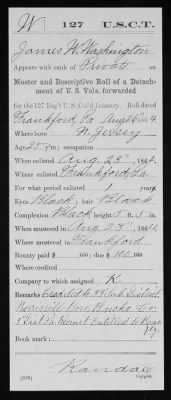 W 127 U.S.C.T.
James H. Washington
Appears with rank of Private on
Muster and Descriptive Roll of a Detach-
ment of U. S. Vols. forwarded
for the 127 Reg't U.S. Col'd Infantry. Roll dated
Frankford, Pa Aug 26 1864
Where born N. Jersey
Age 25 y'rs; occupation
When enlisted Aug. 23", 1864.
Where enlisted Frankford, Pa.
For what period enlisted 1 years.
Eyes Black; hair Black
Complexion Black; height 5 ft. 5 in.
When mustered in Aug. 23", 1864.
Where mustered in Frankford
Bounty paid $ 100; due $ 100
Where credited
Company to which assigned K
Remarks: Credited to
Morrisville Boro, Bucks Co
5" Dist Pa. Recruit Entitled to
Book mark:
Randall
(339) Copyist.